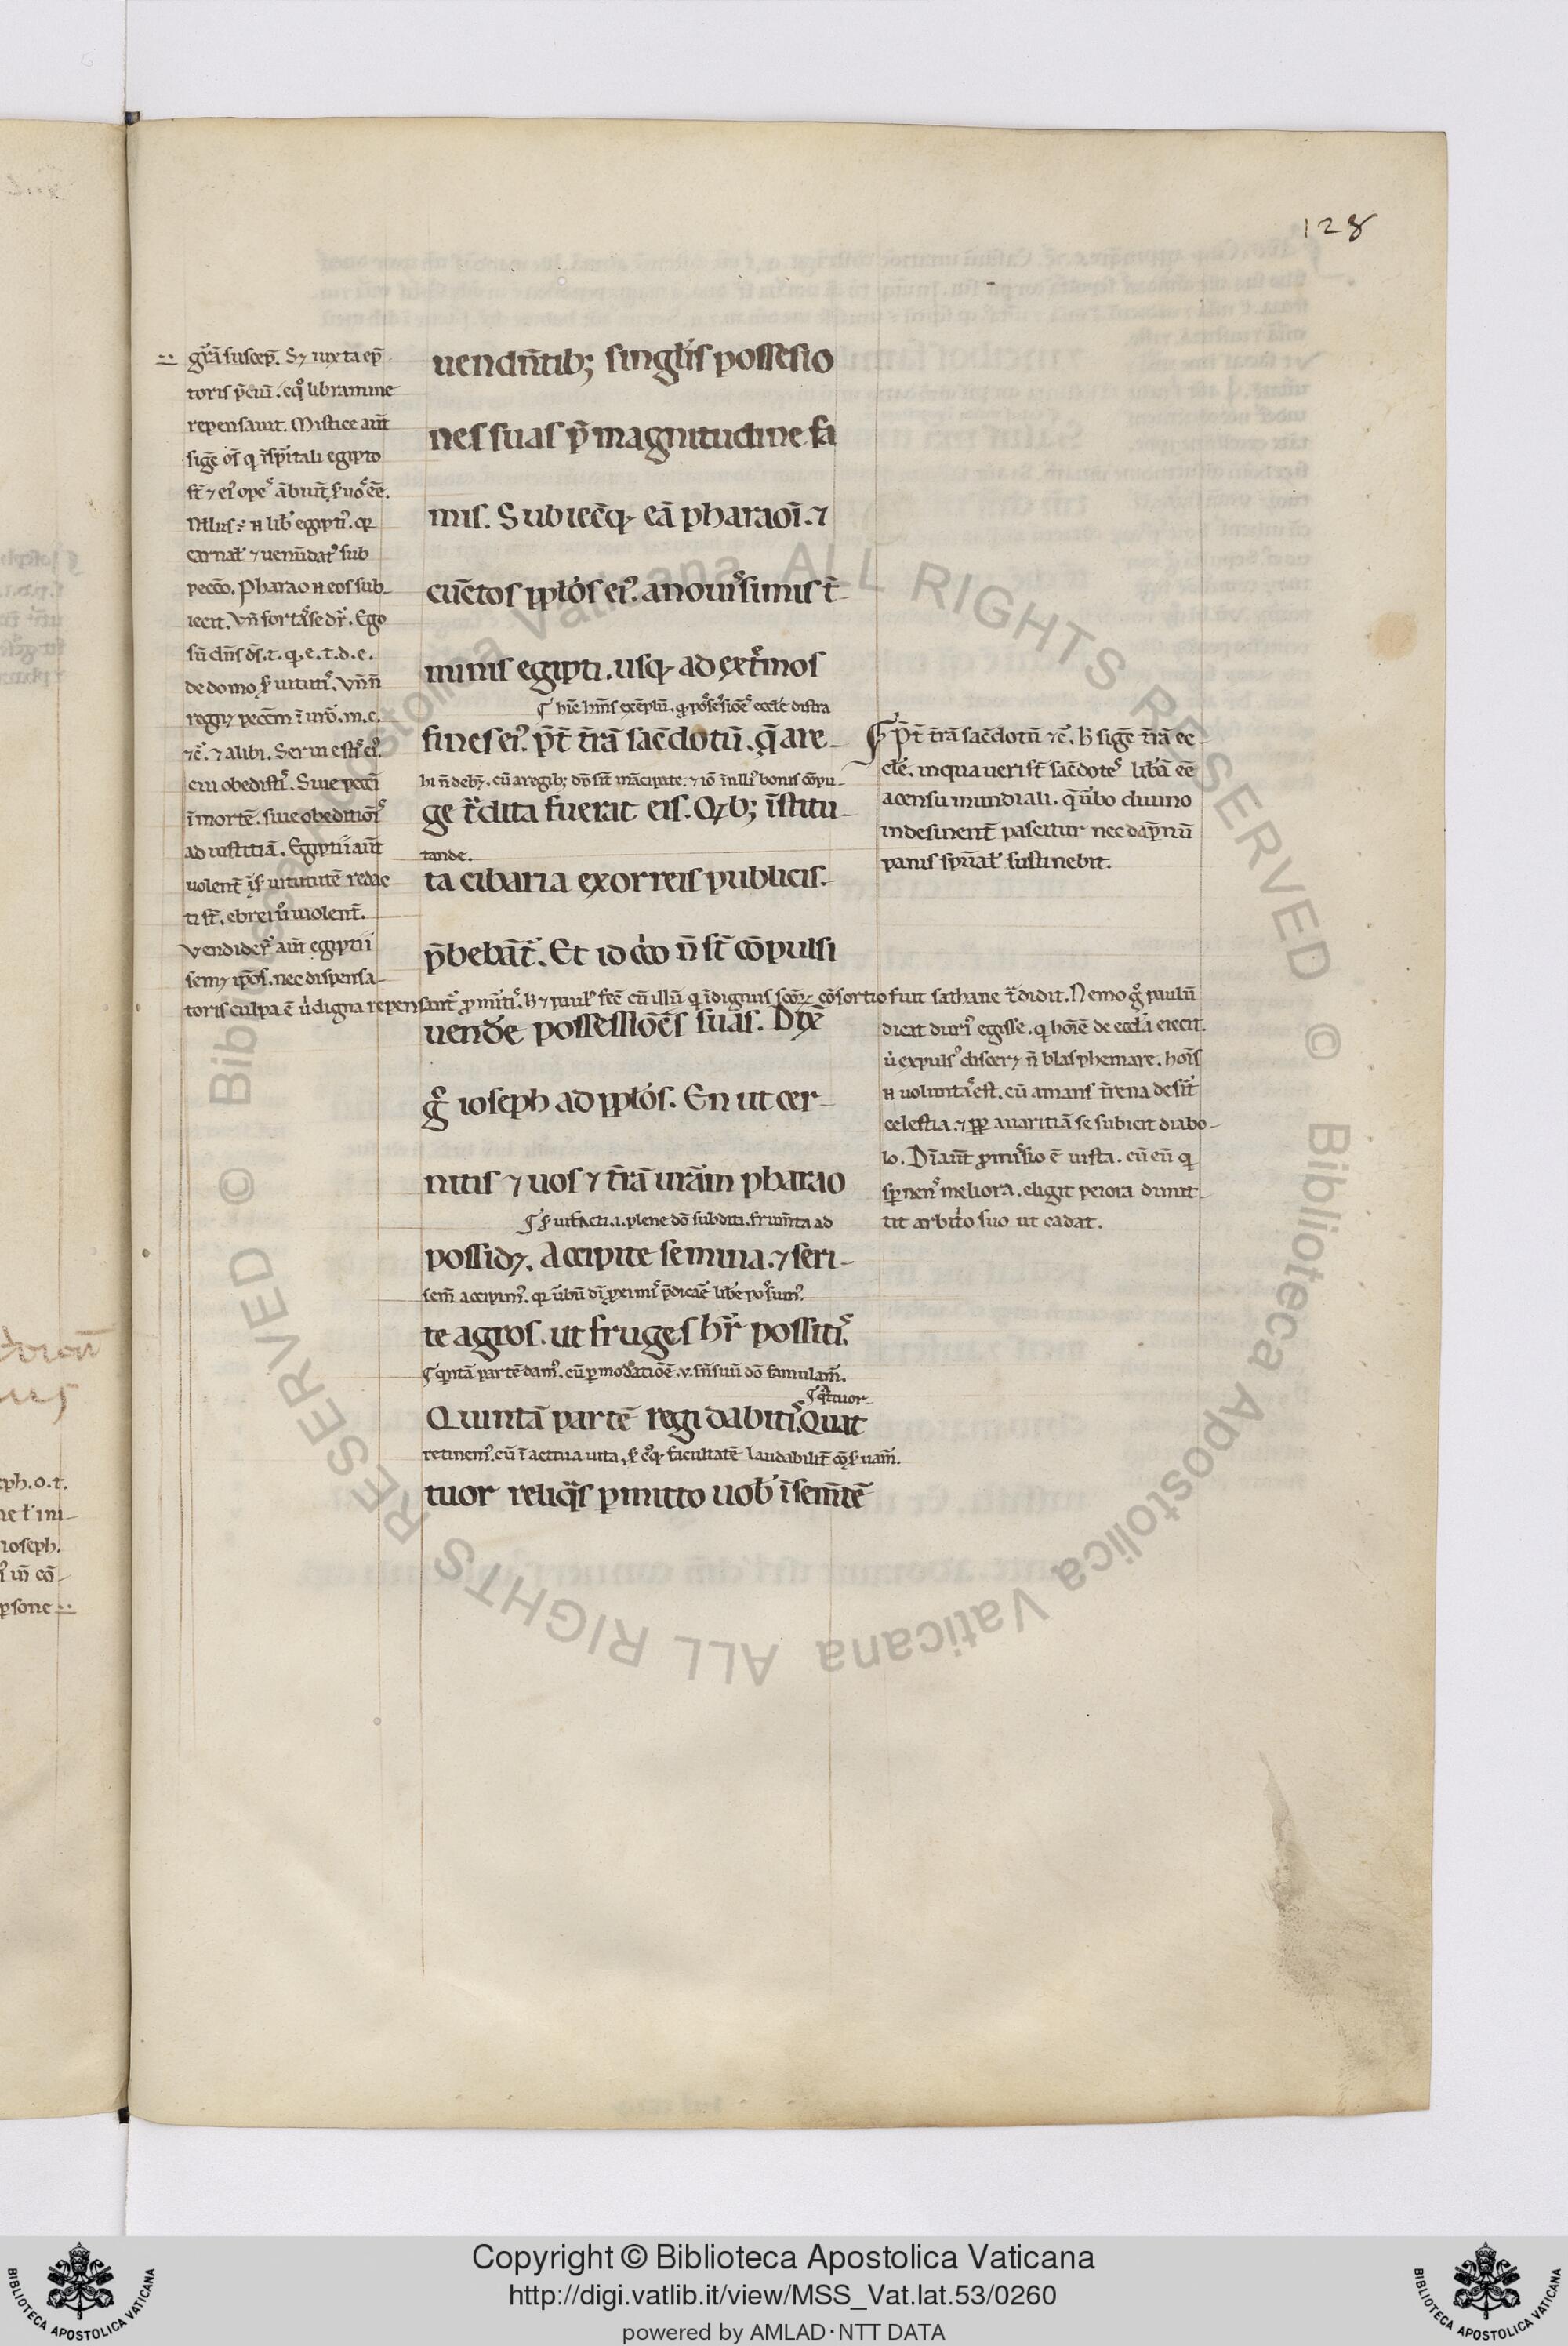 128
grã suscep̃. Sʒ iuxta ep̃
toris p̃ciũ. eq̊ libramine
repensauit. Mistice aũt
sige̅ o̅s̅ q i̅sp̃itali egipto
st̅ ⁊ ei᾽ ope᾽ a̅buut̅. ẜuo᾽ ee̅.
carnal᾽ ⁊ uenũdat᾽ sub
pecc̃o. Pharao n̅ eos sub
iecit. Vn̅ fortasse dr̃. Ego
sũ dn̅s ds̅. t. q. e. t. d. e.
de domo ẜuitutis. Vn̅ n̅
regnʒ pecc̃m i̅ uro̅. m. c.
⁊c̃. ⁊ alibi. Serui estis ei᾽
cui obedistis. Siue pecc̃i
i̅ mortẽ. siue obeditio̅is
ad iustitiã. Egiptii aũt
uolent̃ i̅ ẜuitutẽ redac
ti st̅. ebrei u᾽ uiolent̃.
Vendider̃ aũt egiptii
semʒ ip̃os. nec dispensa
toris culpa ẽ
uendn̅tibʒ singl᾽is possessio
nes suas p̃ magnitudine fa
mis. Subiec̃q᾽ eã pharaoi̅. ⁊
cũctos pp̃lo᾽s ei᾽. a nouissimis t̃
minis egipti. usq᾽ ad ext̃mos
¶ hic hm̅s exe̅plũ. q possessio̅es eccl᾽e distra
fines ei᾽. p̃t̃ t̃rã sac̃dotũ. q̃ a re
hi n̅ debʒ. cũ a regibʒ do̅ sit̃ mãcipate. ⁊ io̅ i̅ nlli᾽ bonis co̅pu
ge t̃dita fuerat eis. Qᷓbʒ ⁊ i̅stitu
tande.
ta cibaria ex orreis publicis
p̃beba̅t̃. Et idc̃co n̅ st̅ co̅pulsi
toris culpa ẽ u᾽ digna repensant̃ p̃mitis. h̅ ⁊ paul᾽ fec̃ cũ illũ q i̅dignus sco̅rʒ co̅sortio fuit sathane t̃didit. Nemo g̊ paulũ
uende᾽ possessio̅es suas. Dix̃
g̊ ioseph ad pp̃lo᾽s. En ut cer
nitis ⁊ uos ⁊ t̃rã urãm pharao
¶ ẜui facti. i. plene do̅ subditi. frum̃ta ad
possidʒ. Accipite semina. ⁊ seri
sem̃ accipim᾽. q᾽ u̅bũ di̅ p̃ximis p̃dicac̃ libe᾽ possum᾽.
te agros. ut fruges hr̃ possitis.
¶ qntã partẽ dam᾽. cũ p moderatio̅ẽ. v. sn̅suũ do̅ famulam᾽.
¶ q̃tuor
Quintã partẽ regi dabitis. Quat
retinem᾽. cũ i̅ actiua uita, ẜ c̃q᾽ facultatẽ laudabilit̃ co̅ẜuam᾽.
tuor reliq̃s p mitto uob᾽ i̅ sem̃tẽ
¶ P̃t̃ t̃rã sac̃dotũ ⁊c̃. h̅ sige̅ t̃rã ec
cl᾽e. in qua ueri st̅ sac̃dotes libã ee̅
a censu mundiali. q̃ u̅bo diuino
indesinent̃ pascitur nec dãpnũ
panis sp̃ual᾽ sustinebit.
dicat duri᾽ egisse. q hoi̅ẽ de eccl᾽a eiecit.
u᾽ expuls᾽ discerʒ n̅ blasphemare. hoi̅s
n̅ uoluntas est. cũ amans t̃rena desit̃
celestia. ⁊ pp̃ auaritiã se subicit diabo
lo. Di̅ aũt p̃missio ẽ iusta. cũ eũ q
sp̃nens meliora. eligit peiora dimit
tit arbit̃o suo ut cadat.
Copyright © Biblioteca Apostolica Vaticana
http://digi.vatlib.it/view/MSS_Vat.lat.53/0260
powered by AMLAD·NTT DATA
BIBLIOTECA APOSTOLICA VATICANA
BIBLIOTECA APOSTOLICA VATICANA